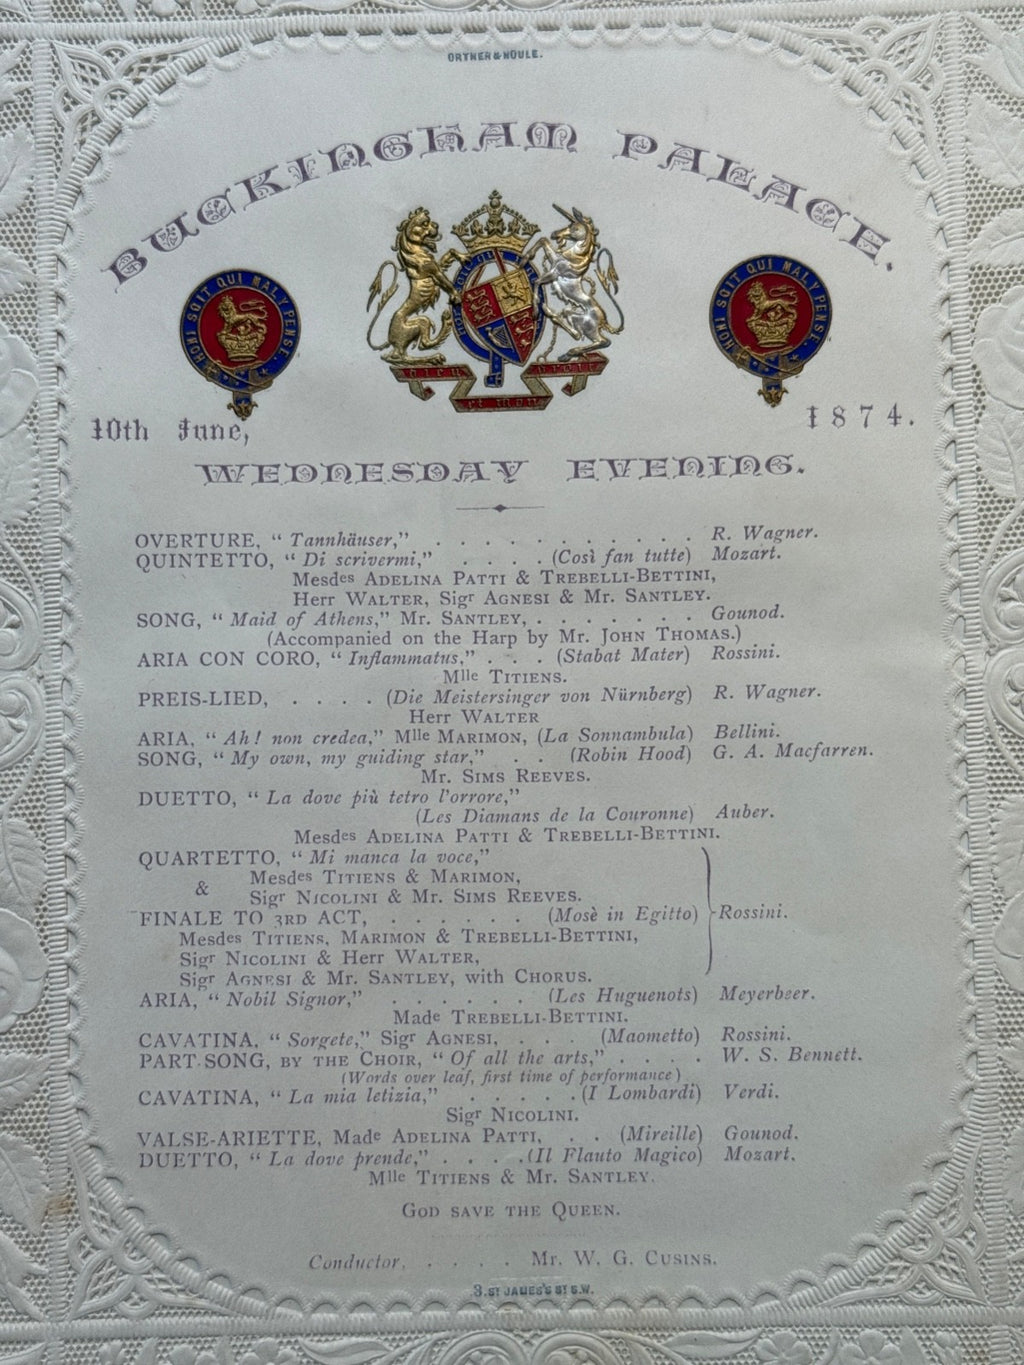 ORTNER & HOULE.
BUCKINGHAM PALACE.
HONI SOIT QUI MAL Y PENSE.
HONI SOIT QUI MAL Y PENSE.
Dieu et mon droit
10th June, 1874.
WEDNESDAY EVENING.
OVERTURE, “Tannhäuser,” . . . . . . . . . . . R. Wagner.
QUINTETTO, “Di scrivermi,” . . . . (Così fan tutte) Mozart.
Mesdes ADELINA PATTI & TREBELLI-BETTINI,
Herr WALTER, Sigr AGNESI & Mr. SANTLEY.
SONG, “Maid of Athens,” Mr. SANTLEY, . . . . . . . Gounod.
(Accompanied on the Harp by Mr. JOHN THOMAS.)
ARIA CON CORO, “Inflammatus,” . . . (Stabat Mater) Rossini.
Mlle TITIENS.
PREIS-LIED, . . . . (Die Meistersinger von Nürnberg) R. Wagner.
Herr WALTER
ARIA, “Ah! non credea,” Mlle MARIMON, (La Sonnambula) Bellini.
SONG, “My own, my guiding star,” . . (Robin Hood) G. A. Macfarren.
Mr. SIMS REEVES.
DUETTO, “La dove più tetro l'orrore,”
(Les Diamans de la Couronne) Auber.
Mesdes ADELINA PATTI & TREBELLI-BETTINI.
QUARTETTO, “Mi manca la voce,”
Mesdes TITIENS & MARIMON,
&
Sigr NICOLINI & Mr. SIMS REEVES.
FINALE TO 3RD ACT, . . . . . . (Mosè in Egitto) Rossini.
Mesdes TITIENS, MARIMON & TREBELLI-BETTINI,
Sigr NICOLINI & Herr WALTER,
Sigr AGNESI & Mr. SANTLEY, with CHORUS.
ARIA, “Nobil Signor,” . . . . . . (Les Huguenots) Meyerbeer.
Made TREBELLI-BETTINI.
CAVATINA, “Sorgete,” Sigr AGNESI, . . . (Maometto) Rossini.
PART-SONG, BY THE CHOIR, “Of all the arts,” . . . . W. S. Bennett.
(Words over leaf, first time of performance)
CAVATINA, “La mia letizia,” . . . . . (I Lombardi) Verdi.
Sigr NICOLINI.
VALSE-ARIETTE, Made ADELINA PATTI, . . (Mireille) Gounod.
DUETTO, “La dove prende,” . . . . (Il Flauto Magico) Mozart.
Mlle TITIENS & Mr. SANTLEY.
GOD SAVE THE QUEEN.
Conductor, . . . . Mr. W. G. CUSINS.
3, ST JAMES'S ST S.W.